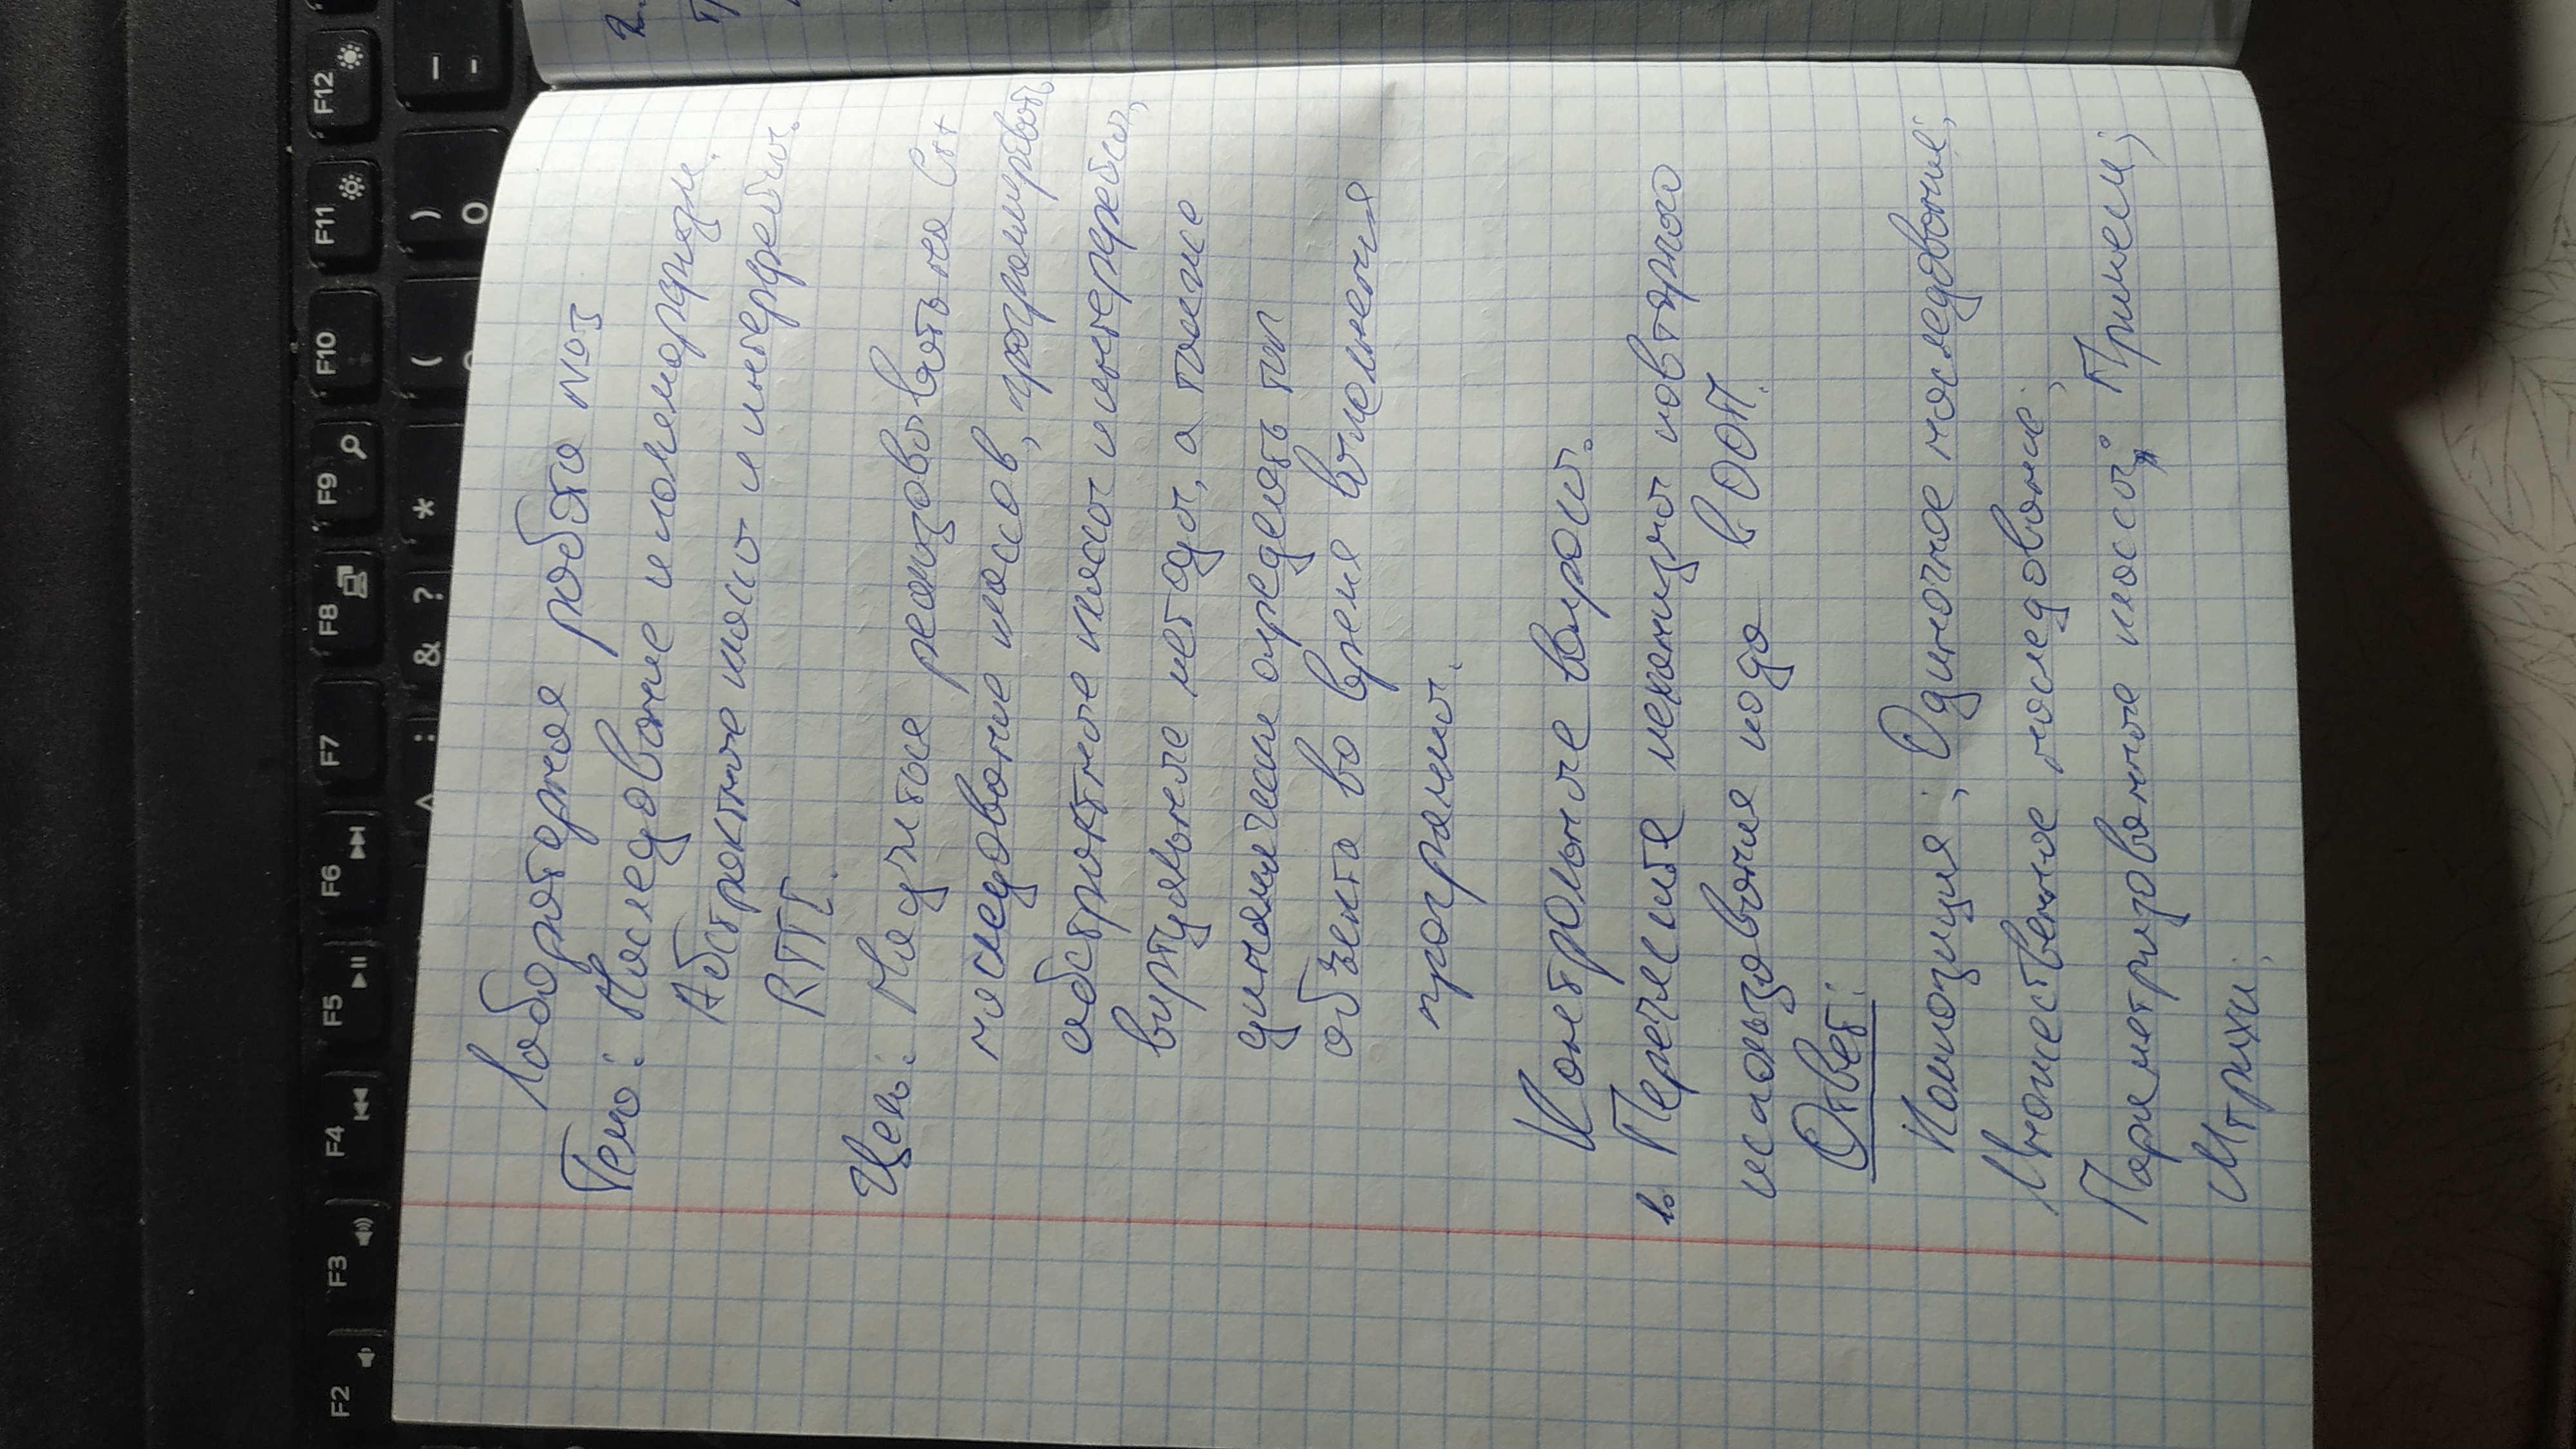 F2 F3 F4 F5 F6 F7 F8 F9 F10 F11 F12
^ : & ? * ( ) —
0 -
Лабораторная работа №3
Тема: Наследование и полиморфизм.
Абстрактные классы и интерфейсы.
RTTI.
Цель: Научиться реализовывать на C++
наследование классов, программировать
абстрактные классы и интерфейсы,
виртуальные методы, а также
динамически определять тип
объекта во время выполнения
программы.
Контрольные вопросы.
1. Перечислите механизмы повторного
использования кода в ООП.
Ответ:
Композиция; Одиночное наследование;
Множественное наследование;
Параметризованные классы; Примеси;
Штрихи;
2.